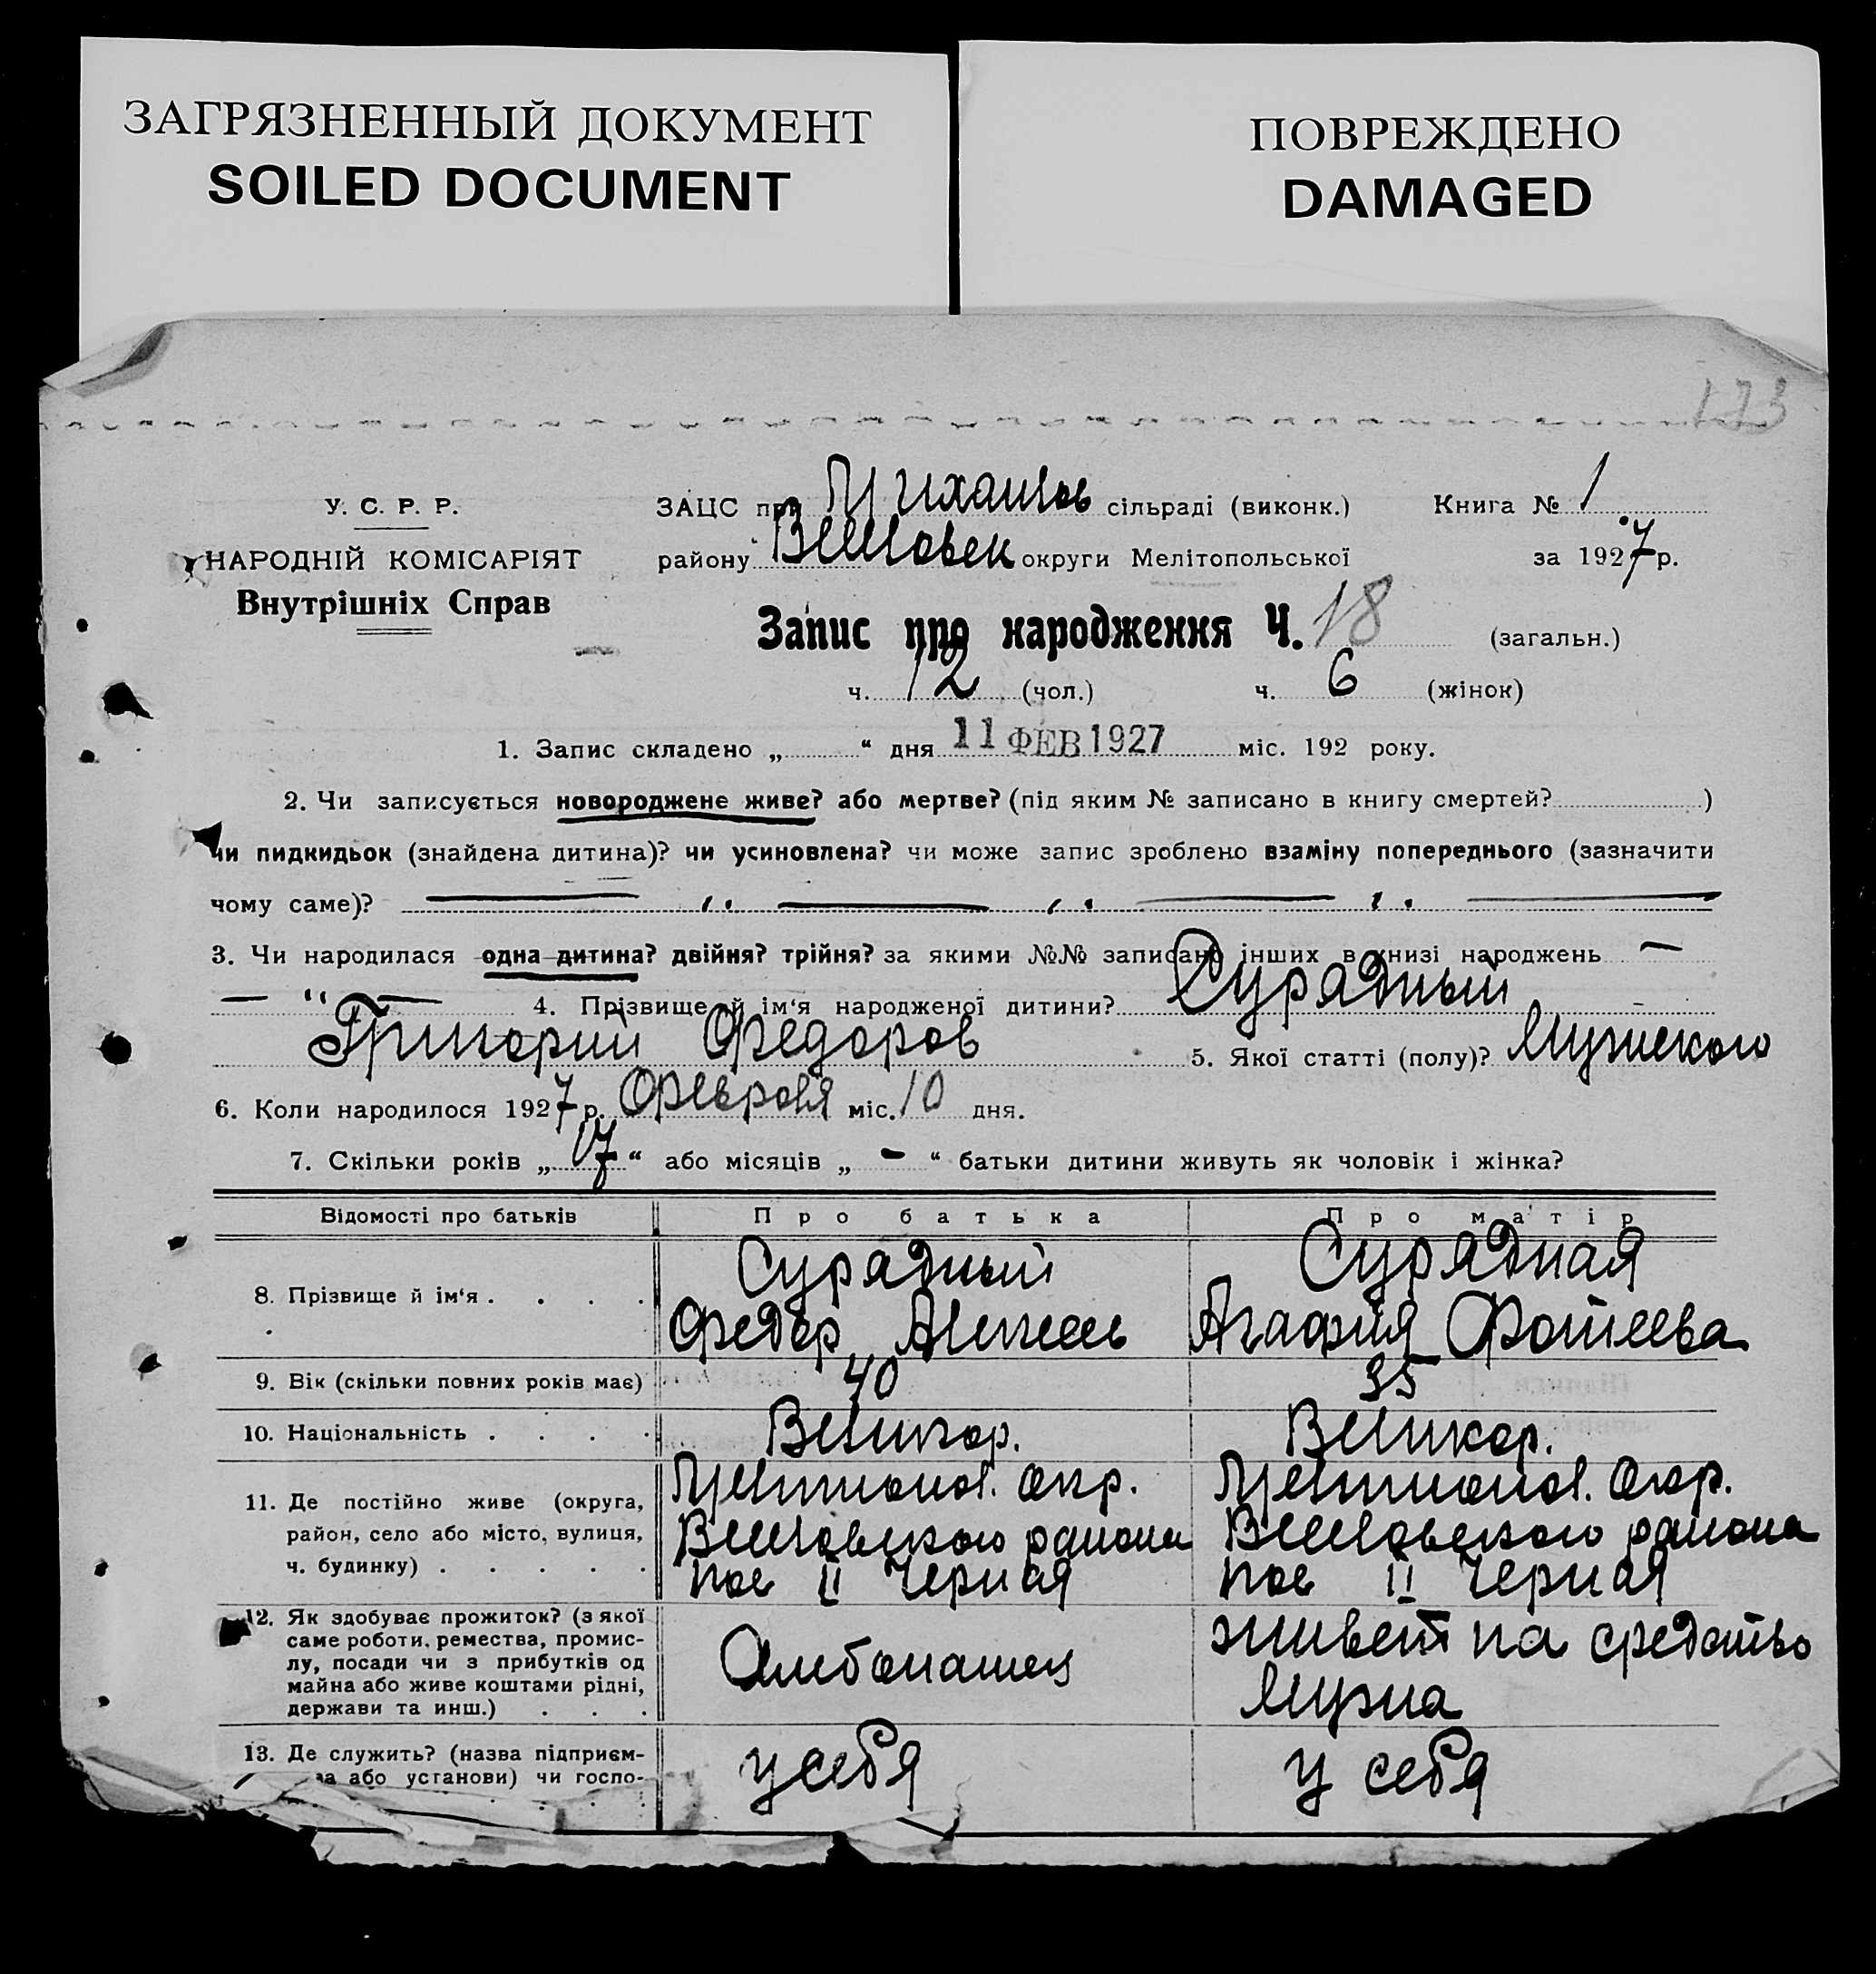 ЗАГРЯЗНЕННЫЙ ДОКУМЕНТ
SOILED DOCUMENT
ПОВРЕЖДЕНО
DAMAGED
173
У. С. Р. Р.
НАРОДНІЙ КОМІСАРІЯТ
Внутрішніх Справ
ЗАЦС при Михайлов сільраді (виконк.) Книга № 1
району округи Мелітопольської за 1927 р.
Запис про народження Ч. 18 (загальн.)
ч. 12 (чол.) ч. 6 (жінок)
1. Запис складено „ “ дня 11 ФЕВ 1927 міс. 192 року.
2. Чи записується новороджене живе? або мертве? (під яким № записано в книгу смертей? )
чи пидкидьок (знайдена дитина)? чи усиновлена? чи може запис зроблено взаміну попереднього (зазначити
чому саме)? — „ — „ — „ —
3. Чи народилася одна дитина? двійня? трійня? за якими №№ записано інших в книзі народжень —
— “ — 4. Прізвище й ім‘я народженої дитини? Сурядный
Григорий Федоров 5. Якої статті (полу)? Мужского
6. Коли народилося 1927 р. Февраля міс. 10 дня.
7. Скільки років „ 17 “ або місяців „ - “ батьки дитини живуть як чоловік і жінка?
Відомості про батьків Про батька Про матір
8. Прізвище й ім‘я . . . .
Сурядный
Федор
Сурядная
Агафия Фотеева
9. Вік (скільки повних років має) 40 35
10. Національність . . . . Великор. Великор.
11. Де постійно живе (округа,
район, село або місто, вулиця,
ч. будинку) . . . . .
Мелитопол. окр.
района
пос II Черная
Мелитопол. Окр.
района
пос II Черная
12. Як здобуває прожиток? (з якої
саме роботи, ремества, промис-
лу, посади чи з прибутків од
майна або живе коштами рідні,
держави та инш.) . . .
Хлебопашец
живет на средство
Мужа
13. Де служить? (назва підприєм-
ва або установи) чи госпо-
у себя
у себя